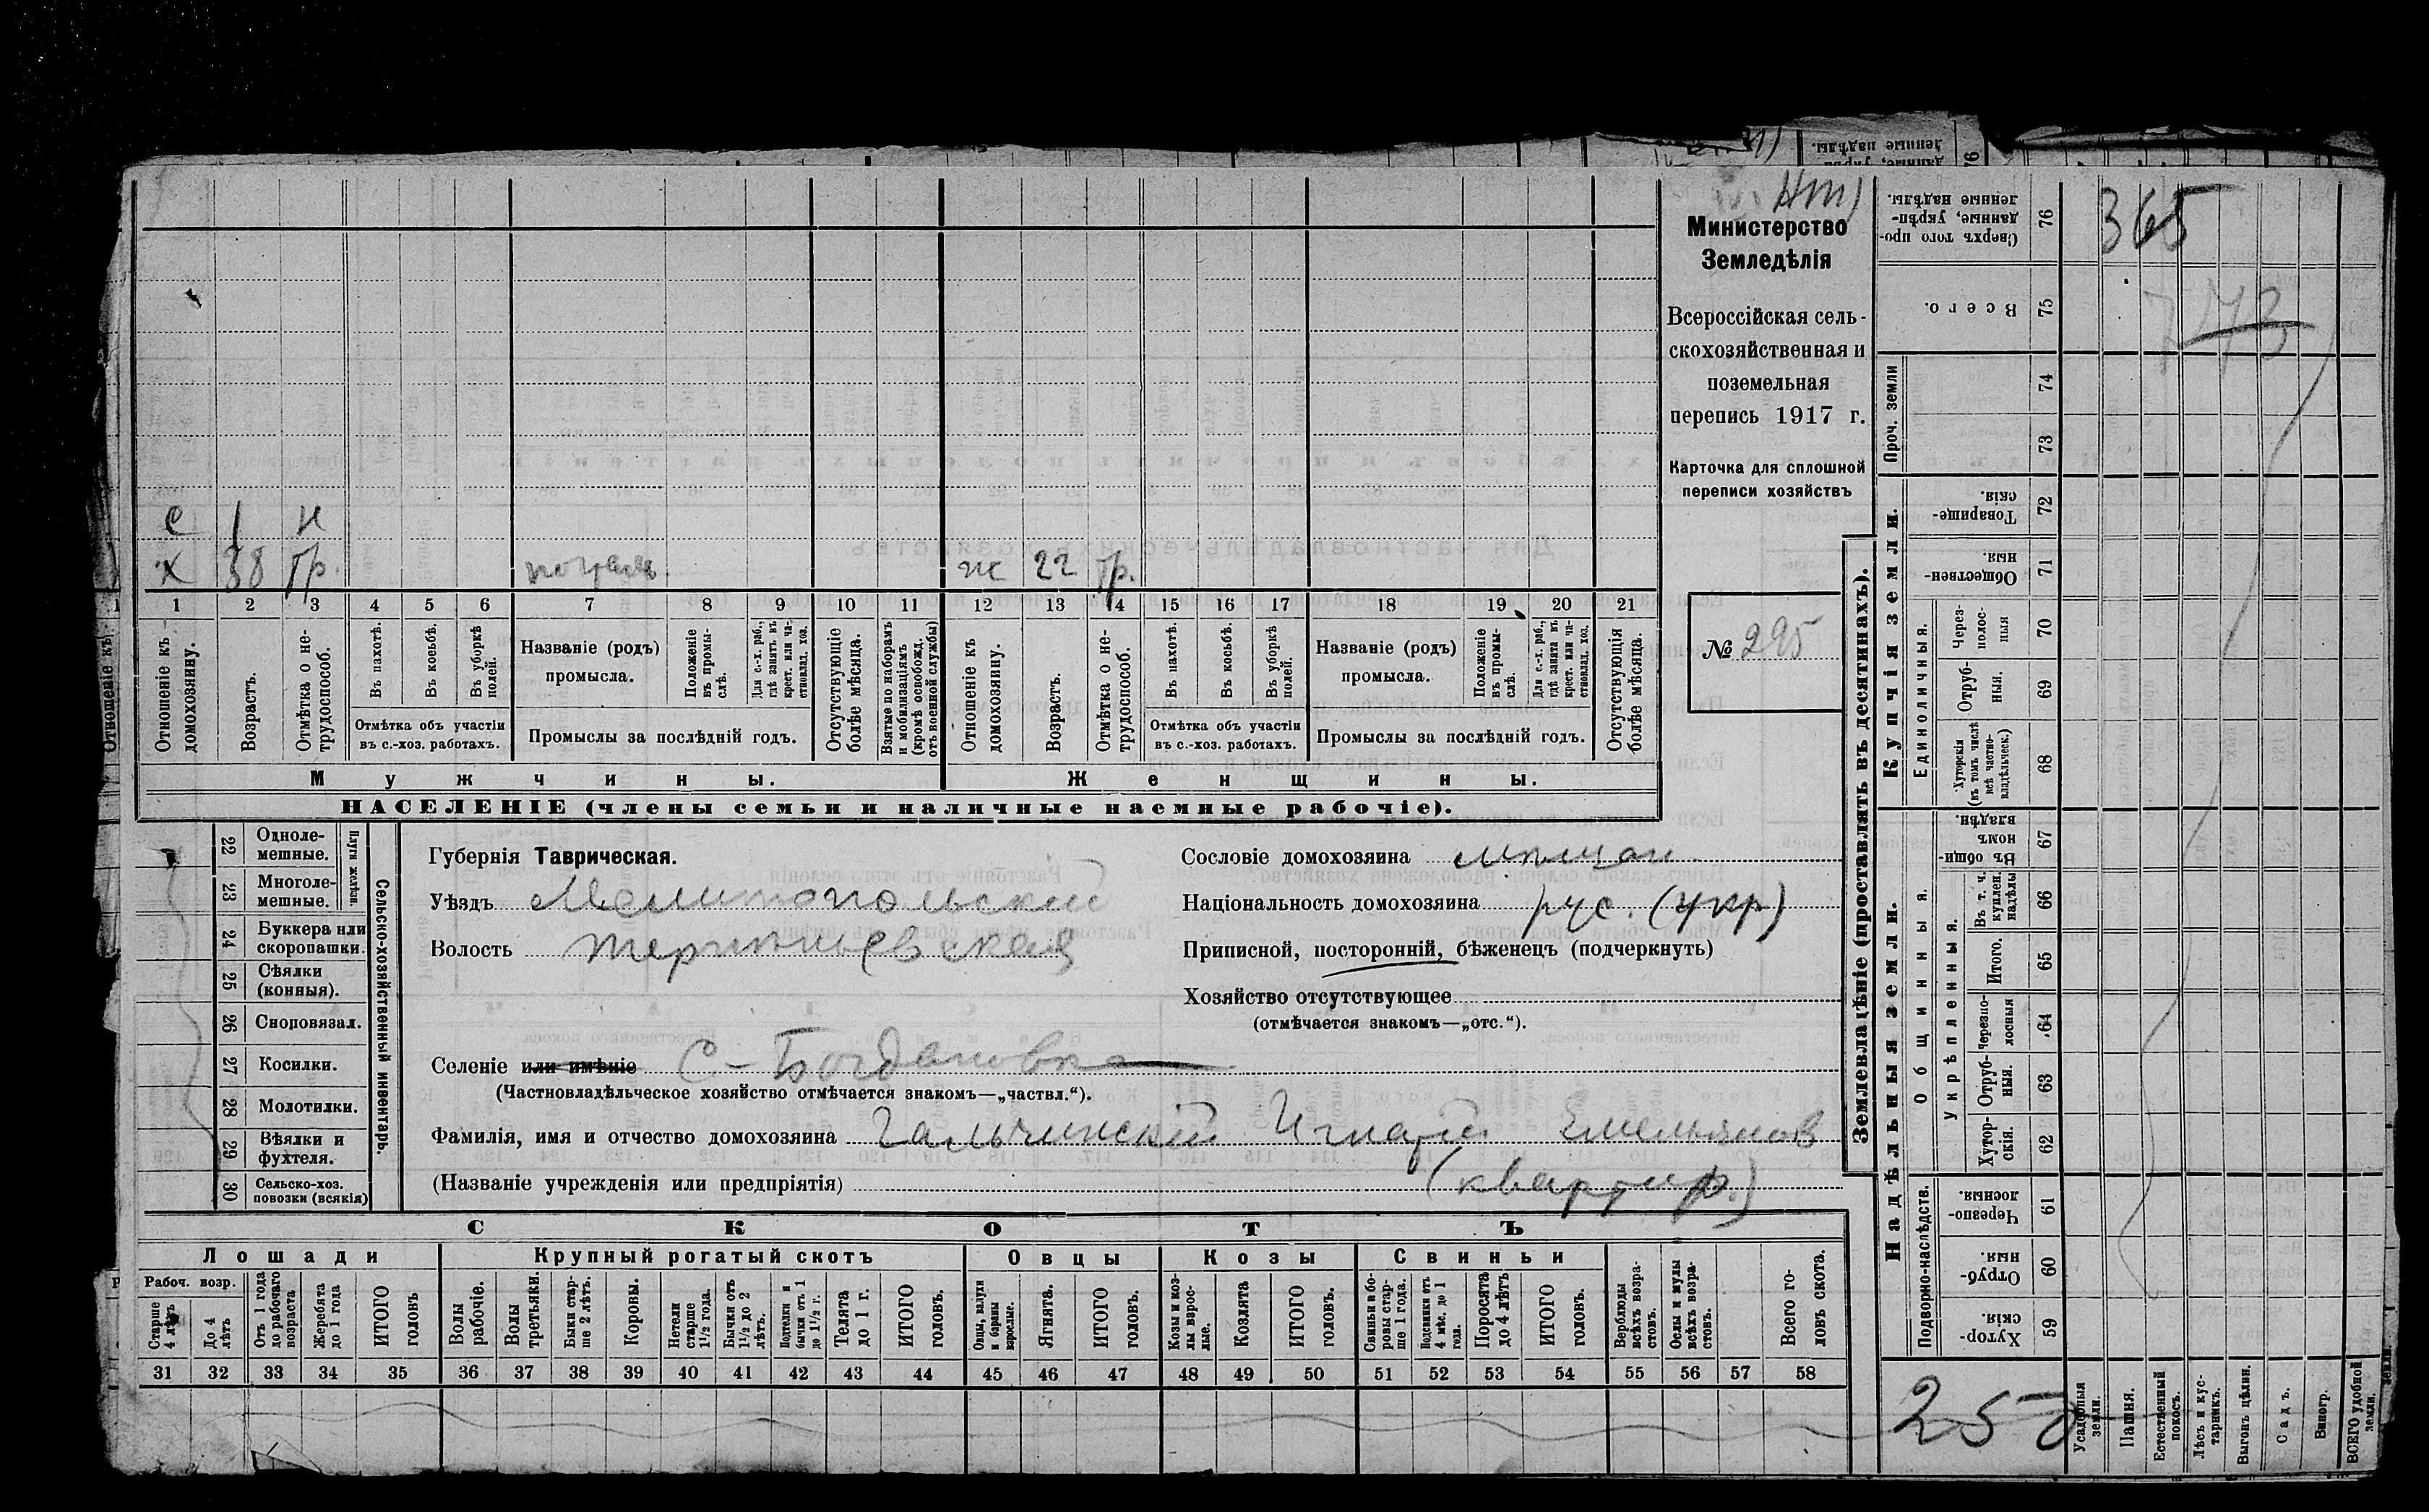 Нт)
Министерство
Земледѣлія
Всероссійская сель-
скохозяйственная и
поземельная
перепись 1917 г.
Карточка для сплошной
переписи хозяйствъ
№ 295
с 1 н
х 38 гр. ж 22 гр.
1 2 3 4 5 6 7 8 9 10 11 12 13 14 15 16 17 18 19 20 21
Отношеніе къ домохозяину.
Возрастъ.
Отмѣтка о не-трудоспособ.
Въ пахотѣ.
Въ косьбѣ.
Въ уборкѣ полей.
Отмѣтка объ участіи
въ с.-хоз. работахъ.
Названіе (родъ)
промысла.
Положеніе въ промы-слѣ.
Для с.-х. раб., гдѣ занятъ въ крест. или ча-стновлад. хоз.
Промыслы за послѣдній годъ.
Отсутствующіе болѣе мѣсяца.
Взятые по наборамъ и мобилизаціямъ (кромѣ освобожд. отъ военной службы)
Отношеніе къ домохозяину.
Возрастъ.
Отмѣтка о не-трудоспособ.
Въ пахотѣ.
Въ косьбѣ.
Въ уборкѣ полей.
Отмѣтка объ участіи
въ с.-хоз. работахъ.
Названіе (родъ)
промысла.
Положеніе въ промы-слѣ.
Для с.-х. раб., гдѣ занята въ крест. или ча-стновлад. хоз.
Промыслы за послѣдній годъ.
Отсутствующія болѣе мѣсяца.
Мужчины. Женщины.
НАСЕЛЕНІЕ (члены семьи и наличные наемные рабочіе).
22 Одноле-мешные.
23 Многоле-мешные.
Плуги желѣзн.
24 Буккера или скоропашки.
25 Сѣялки (конныя).
26 Сноповязал.
27 Косилки.
28 Молотилки.
29 Вѣялки и фухтеля.
30 Сельско-хоз. повозки (всякія)
Сельско-хозяйственный инвентарь.
Губернія Таврическая.
Уѣздъ Мелитопольскій
Волость Терпѣньевская
Селеніе или имѣніе С-Богдановка
(Частновладѣльческое хозяйство отмѣчается знакомъ—„частвл.“).
Фамилія, имя и отчество домохозяина Гальчинскій Игнатій Емельянов
(Названіе учрежденія или предпріятія) (квартир.)
Сословіе домохозяина мѣщан.
Національность домохозяина рус. (укр)
Приписной, посторонній, бѣженецъ (подчеркнуть)
Хозяйство отсутствующее
(отмѣчается знакомъ—„отс.“).
СКОТЪ
Лошади Крупный рогатый скотъ Овцы Козы Свиньи
Рабоч. возр.
Старше 4 лѣтъ
До 4 лѣтъ
Отъ 1 года до рабочаго возраста
Жеребята до 1 года
ИТОГО головъ
Волы рабочіе.
Волы третьяки.
Быки стар-ше 2 лѣтъ.
Коровы.
Нетели старше 1½ года.
Бычки отъ 1½ до 2 лѣтъ.
Подтелки и бычки отъ 1 до 1½ г.
Телята до 1 г.
ИТОГО головъ.
Овцы, валухи и бараны взрослые.
Ягнята.
ИТОГО головъ.
Козы и коз-лы взрос-лые.
Козлята
ИТОГО головъ.
Свиньи и бо-ровы стар-ше 1 года.
Подсвинки отъ 4 мѣс. до 1 года.
Поросята до 4 лѣтъ
ИТОГО головъ.
Верблюды всѣхъ возра-стовъ.
Ослы и мулы всѣхъ возра-стовъ.
Всего го-ловъ скота.
31 32 33 34 35 36 37 38 39 40 41 42 43 44 45 46 47 48 49 50 51 52 53 54 55 56 57 58
Землевладѣніе (проставлять въ десятинахъ).
365
773
Сверхъ того про-данные, укрѣп-ленные надѣлы. 76
Всего. 75
Проч. земли 74 73
Купчія земли.
Товарище-скія. 72
Обществен-ныя. 71
Единоличныя.
Через-полос-ныя 70
Отруб-ныя. 69
Хуторскія (въ томъ числѣ всѣ частно-владѣльческ.) 68
Надѣльныя земли.
Общинныя.
Въ общи-номъ владѣн. 67
Укрѣпленныя.
Въ т. ч. куплен. надѣлы 66
Итого. 65
Черезпо-лосныя 64
Отруб-ныя. 63
Хутор-скія. 62
Подворно-наслѣдств.
Черезпо-лосныя. 61
Отруб-ныя. 60
Хутор-скія. 59
250
Усадебныя земли.
Пашня.
Естественный покосъ.
Лѣсъ и кус-тарникъ.
Выгонъ цѣлин.
Садъ.
Виногр.
ВСЕГО удобной земли.